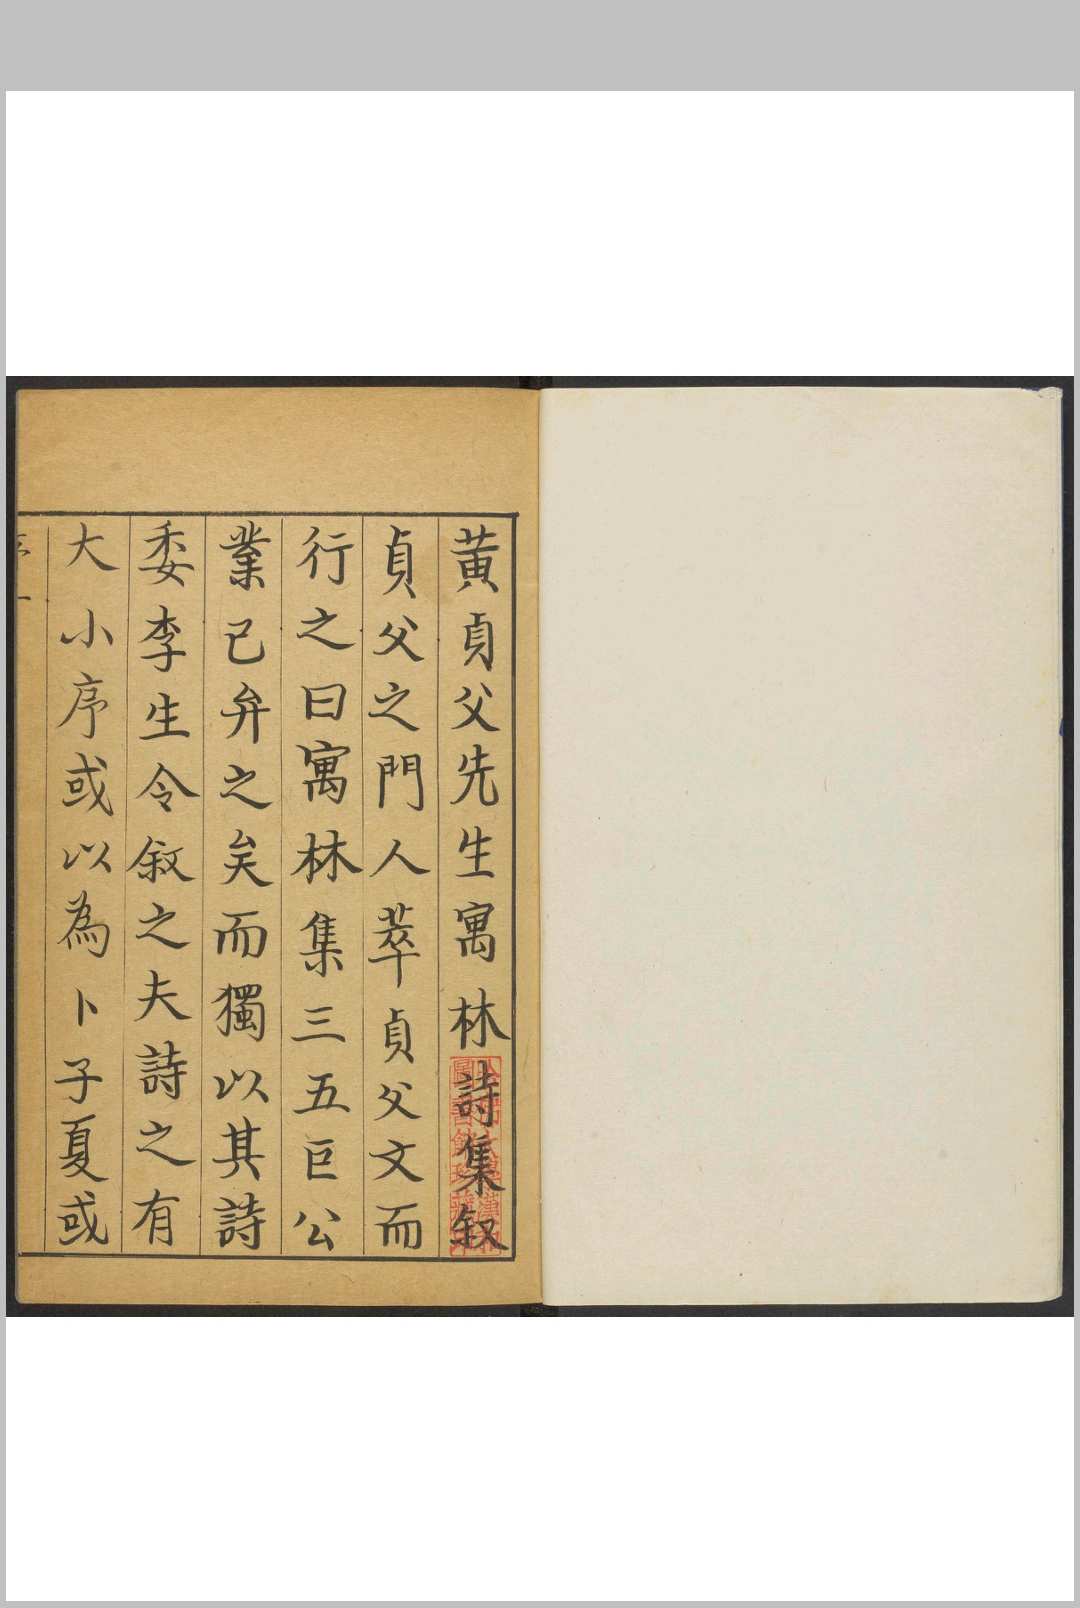 黄貞父先生寓林詩集叙
貞父之門人萃貞父文而
行之曰寓林集三五巨公
業已弁之矣而獨以其詩
委李生令叙之夫詩之有
大小序或以為卜子夏或